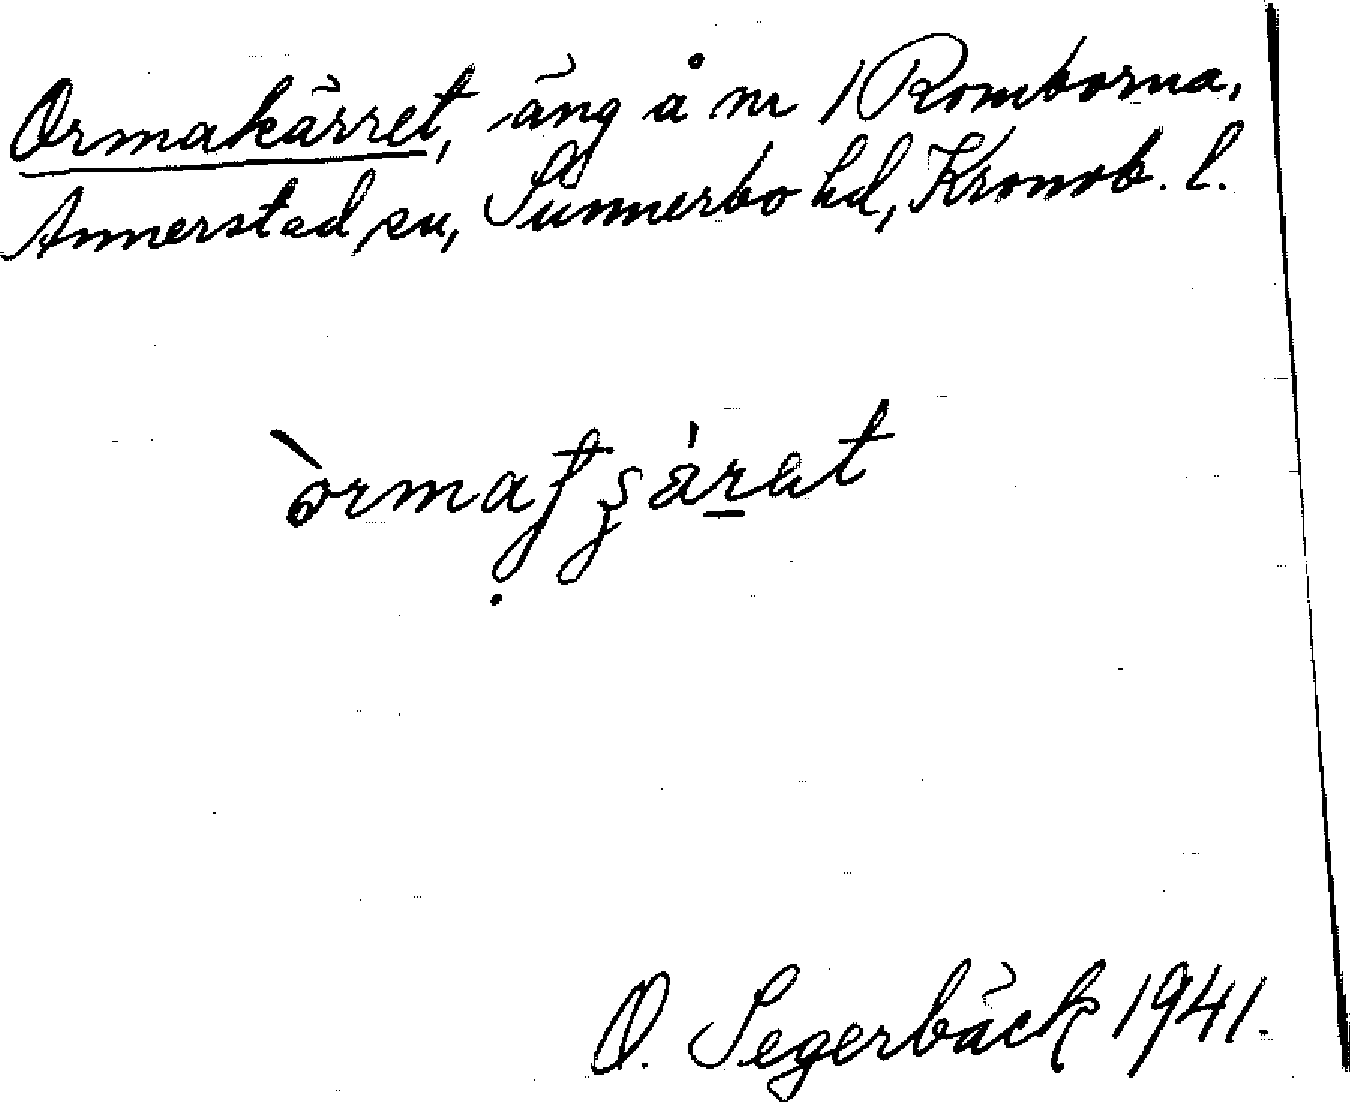 Ormakärret, äng å nr 1 Romborna,
Annerstad sn, Sunnerbo hd, Kronob. l.
O. Segerbäck 1941.